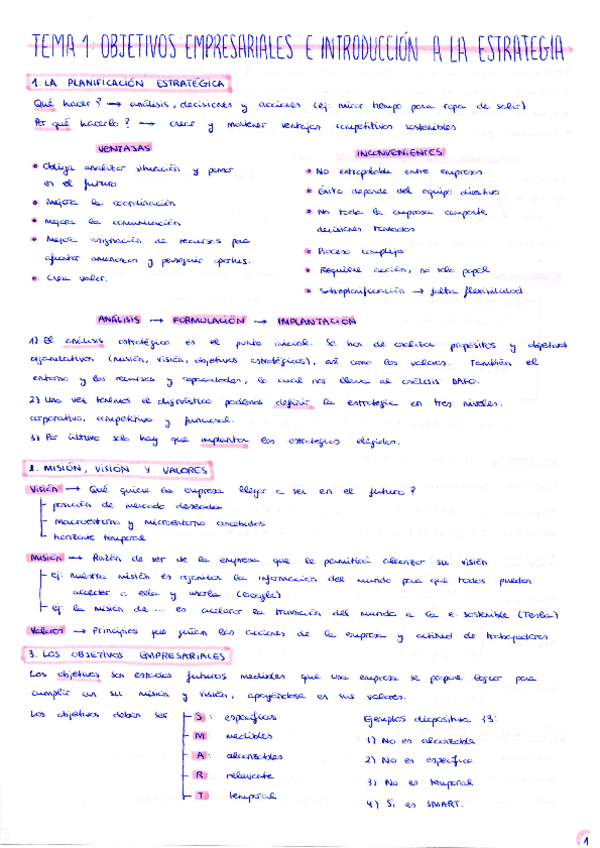 TEMA 1: OBJETIVOS EMPRESARIALES E INTRODUCCIÓN A LA ESTRATEGIA
1. LA PLANIFICACIÓN ESTRATÉGICA
Qué hacer? → análisis, decisiones y acciones (ej: mirar tiempo para ropa de salir)
Por qué hacerlo? → crear y mantener ventajas competitivas sostenibles
VENTAJAS
• Obliga analizar situación y pensar
en el futuro
• Mejora la coordinación
• Mejora la comunicación
• Mejor asignación de recursos para
ajustar amenazas y perseguir oportus.
• Crea valor.
INCONVENIENTES
• No extrapolable entre empresas
• Éxito depende del equipo directivo
• No toda la empresa comparte
decisiones tomadas
• Proceso complejo
• Requiere acción, no solo papel
• Sobreplanificación → falta flexibilidad
ANÁLISIS → FORMULACIÓN → IMPLANTACIÓN
1) El análisis estratégico es el punto inicial. Se han de analizar propósitos y objetivos
organizativos (misión, visión, objetivos estratégicos), así como los valores. También el
entorno y los recursos y capacidades, lo cual nos lleva al análisis DAFO.
2) Una vez tenemos el diagnóstico podemos definir la estrategia en tres niveles:
corporativo, competitivo y funcional.
3) Por último solo hay que implantar las estrategias elegidas.
2. MISIÓN, VISIÓN Y VALORES
Visión → Qué quiere la empresa llegar a ser en el futuro?
posición de mercado deseada
macroentorno y microentorno concebidos
horizonte temporal
Misión → Razón de ser de la empresa que le permitirá alcanzar su visión
ej: nuestra misión es organizar la información del mundo para que todos puedan
acceder a ella y usarla (Google)
ej: la misión de ... es acelerar la transición del mundo a la e. sostenible (Tesla)
Valores → Principios que guían las acciones de la empresa y actitud de trabajadores
3. LOS OBJETIVOS EMPRESARIALES
Los objetivos son estados futuros medibles que una empresa se propone lograr para
cumplir con su misión y visión, apoyándose en sus valores.
Los objetivos deben ser
S: específicos
M: medibles
A: alcanzables
R: relevante
T temporal
Ejemplos diapositiva 13:
1) No es alcanzable
2) No es específico
3) No es temporal
4) Sí es SMART.
1